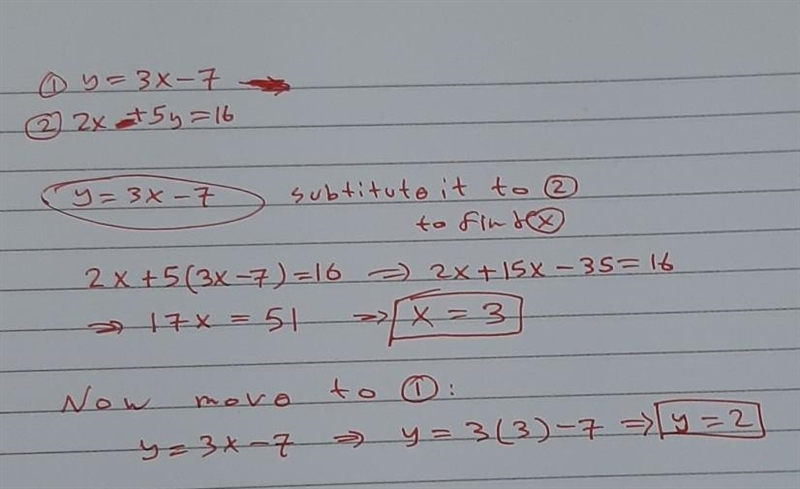 ① y = 3x - 7 →
② 2x + 5y = 16
y = 3x - 7 subtitute it to ②
to find x
2x + 5(3x-7) = 16 ⇒ 2x + 15x - 35 = 16
⇒ 17x = 51 ⇒ x = 3
Now move to ①:
y = 3x - 7 ⇒ y = 3(3) - 7 ⇒ y = 2